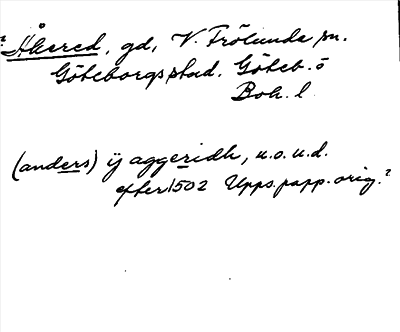 ? Åkered, gd, V. Frölunda sn.
Göteborgs stad. Göteb. o
Boh. l.
(anders) ij aggeridh, u.o.u.d.
efter 1502 Upps. papp. orig.?